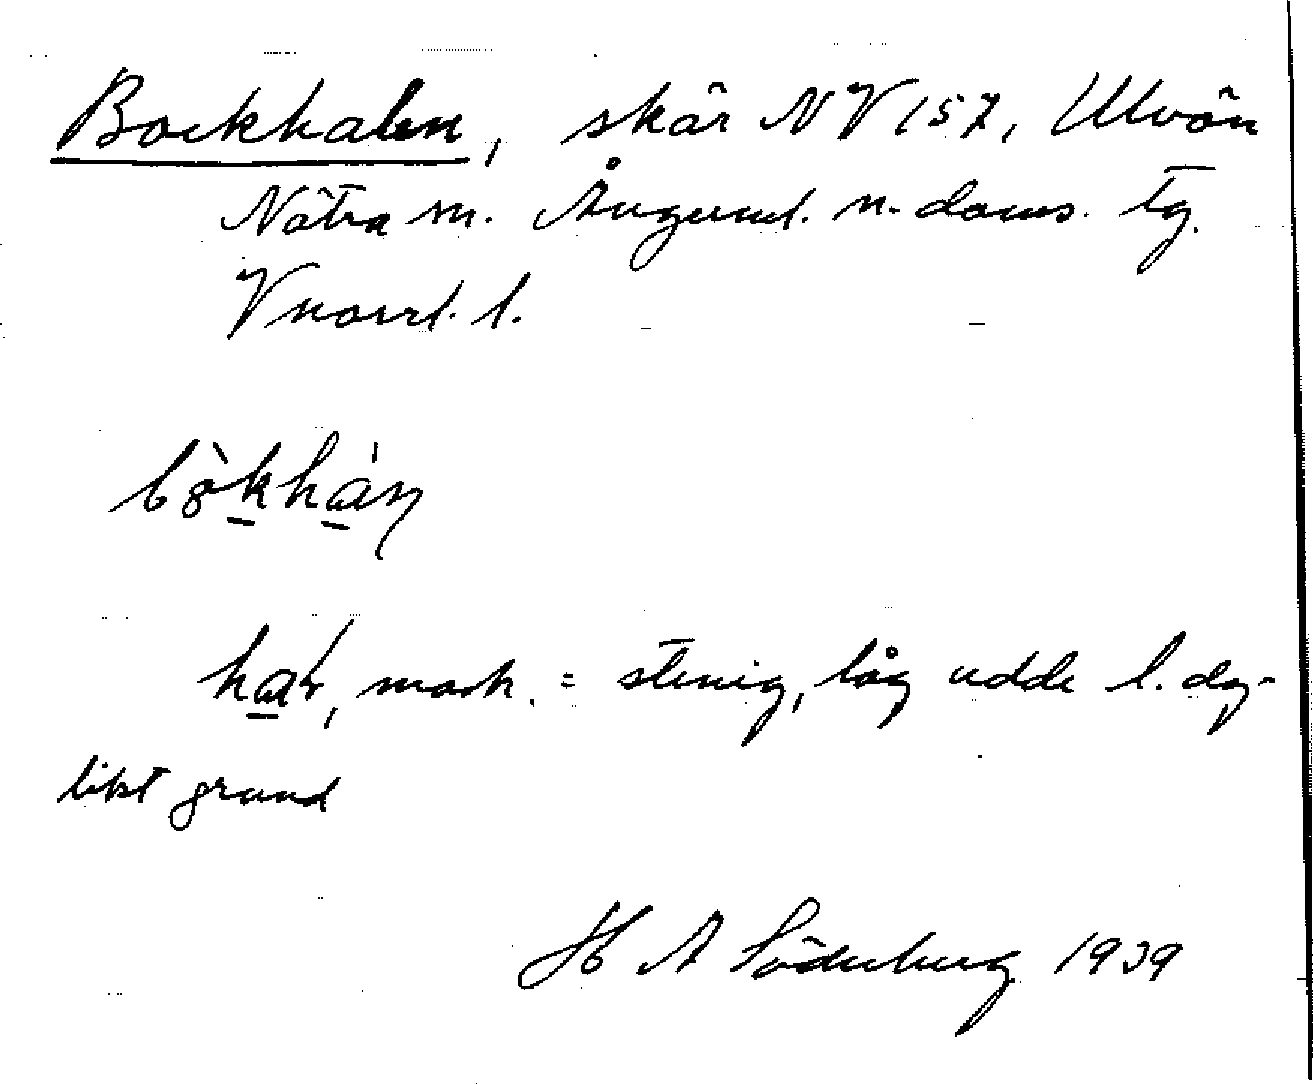 Bockhalen, skär NV 157, Ulvön
Nätra sn. Ångerml. n. doms. tg.
Vnorrl. l.
mask. = stenig, låg udde l. dy-
likt grund
H A Söderberg 1939